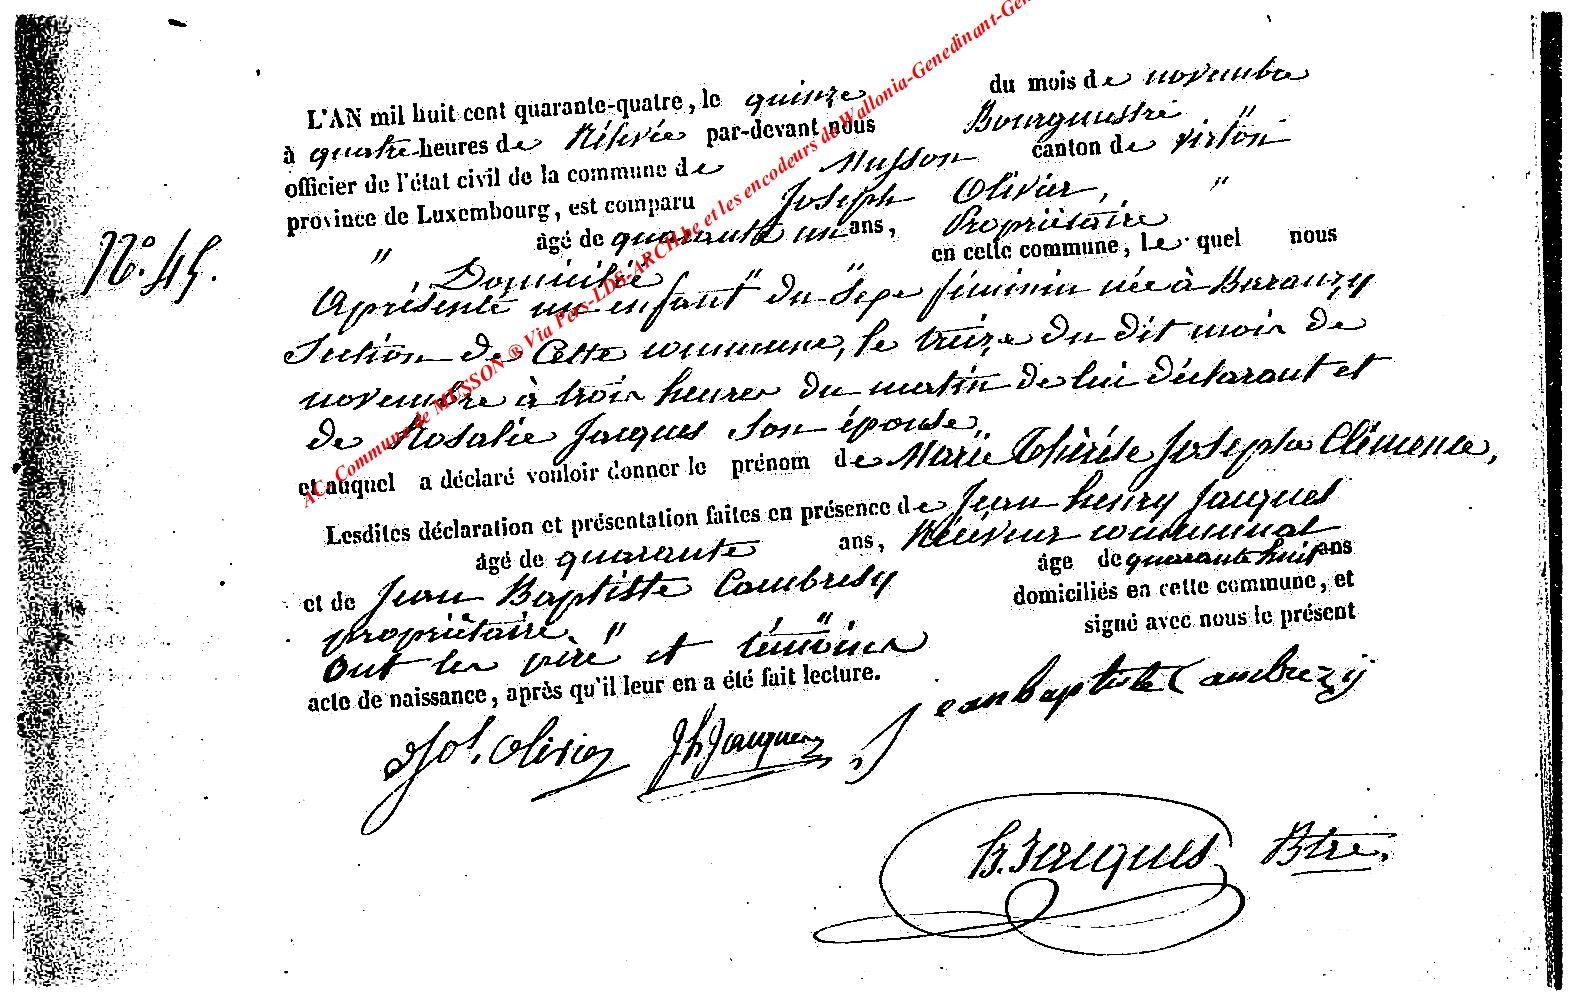 L'AN mil huit cent quarante-quatre, le quinze du mois de novembre
à quatre heures de Rélevée par-devant nous Bourguestre "
officier de l'état civil de la commune de Musson canton de virton
province de Luxembourg, est comparu Joseph Olivier, "
" âgé de quarante un ans, Propriétaire
Domicilié " " en cette commune, le quel nous
Aprésenté un enfant du Sexe féminin née à Baranzy
N°. 45.
Section de Cette commune, le treize du dit mois de
novembre à trois heures du matin de lui déclarant et
de Rosalie Jacques son épouse,
et auquel a déclaré vouloir donner le prénom de Marie Thérèse Josepha Clémence,
Lesdites déclaration et présentation faites en présence de Jean henry Jacques
âgé de quarante ans, Réceveur communal
et de Jean Baptiste Cambresy âge de quarante huit ans
propriétaire " " domiciliés en cette commune, et
Ont les père et témoins signé avec nous le présent
acte de naissance, après qu'il leur en a été fait lecture.
Jos. Olivier J h Jacques Jean baptiste Cambrezÿ
h. Jacques Btre.
AC. Commune de MUSSON ® Via Pers-LDS-ARCH.be et les encodeurs de Wallonia-Genedinant-Gen